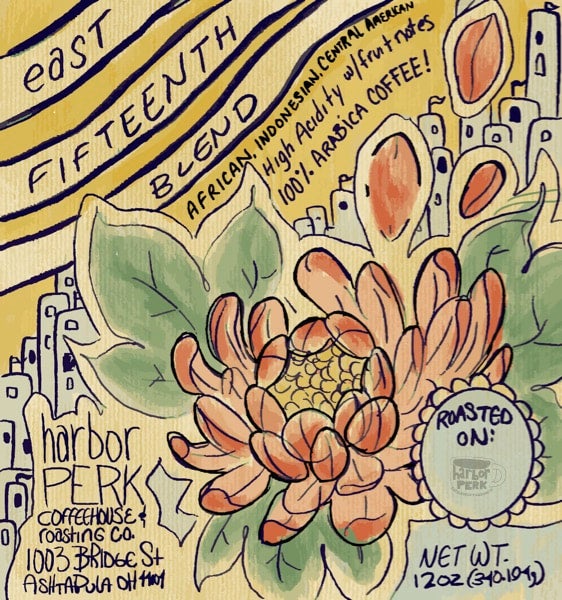 east
FIFTEENTH
BLEND
AFRICAN, INDONESIAN, CENTRAL AMERICAN
High Acidity w/fruit notes
100% ARABICA COFFEE!
harbor
PERK
COFFEEHOUSE &
roasting CO.
1003 BRIDGE St
ASHTABULA OH
ROASTED
ON:
harbor
PERK
NET WT.
12oz (340.194g)